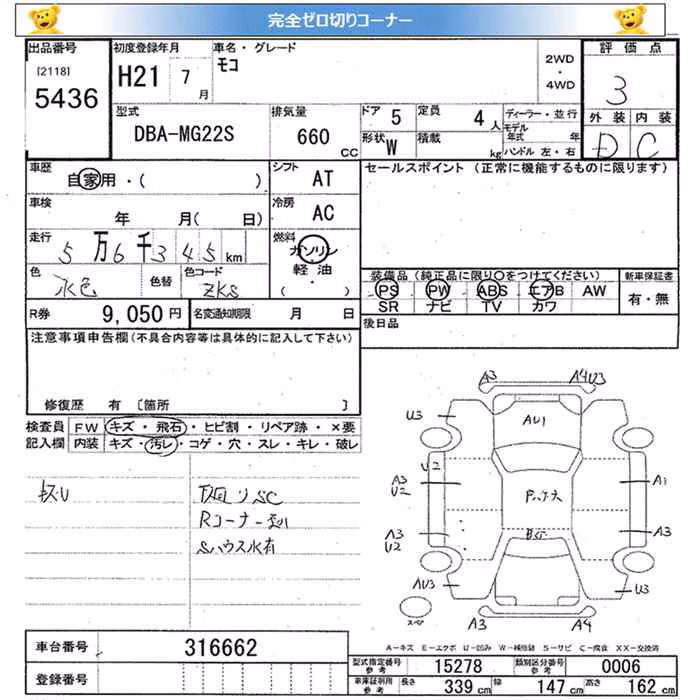 完全ゼロ切りコーナー
出品番号 初度登録年月 車名・グレード 評価点
[2118] モコ 2WD
5436 H21 7月 ・4WD 3
型式 排気量 ドア 5 定員 4人 ディーラー・並行 外装 内装
DBA-MG22S 660 CC 形状 W 積載 kg モデル年式 年 D C
ハンドル 左・右
車歴 シフト セールスポイント (正常に機能するものに限ります)
自家用・( ) AT
車検 冷房
年 月( 日) AC
走行 燃料
5万6千345km ガソリン
色 色替 色コード 軽油 装備品 (純正品に限り○をつけてください) 新車保証書
水色 ZKS ( ・ ) PS PW ABS エアB AW 有・無
SR ナビ TV カワ
R券 9,050円 名変通知期限 月 日 後日品
注意事項申告欄(不具合内容等は具体的に記入して下さい)
修復歴 有 [箇所 ]
検査員 FW キズ・飛石・ヒビ割・リペア跡・×要
記入欄 内装 キズ・汚レ・コゲ・穴・スレ・キレ・破レ
Rコーナー
Sハウス水有
A3 A4 U3
U3 AU1
U2
A3 A1
U2
A3 A3
U2
AU3 U3
スペア A3 A4
A-キズ E-エクボ U-凹み W-補修跡 S-サビ C-腐食 XX-交換済
車台番号 316662
登録番号
型式指定番号 参考 15278 類別区分番号 参考 0006
車庫証明用 参考 長さ 339cm 幅 147cm 高さ 162cm